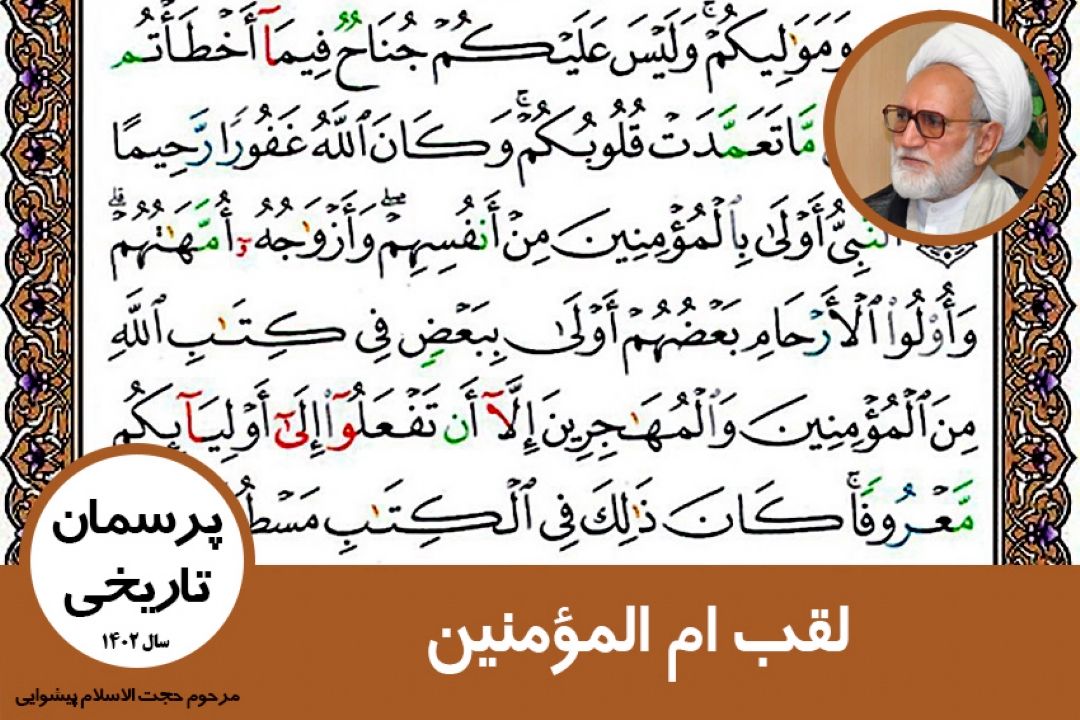 وَمَوَٰلِيكُمۡۚ وَلَيۡسَ عَلَيۡكُمۡ جُنَاحٞ فِيمَآ أَخۡطَأۡتُم
مَّا تَعَمَّدَتۡ قُلُوبُكُمۡۚ وَكَانَ ٱللَّهُ غَفُورٗا رَّحِيمًا
ٱلنَّبِيُّ أَوۡلَىٰ بِٱلۡمُؤۡمِنِينَ مِنۡ أَنفُسِهِمۡۖ وَأَزۡوَٰجُهُۥٓ أُمَّهَٰتُهُمۡۗ
وَأُوْلُواْ ٱلۡأَرۡحَامِ بَعۡضُهُمۡ أَوۡلَىٰ بِبَعۡضٖ فِي كِتَٰبِ ٱللَّهِ
مِنَ ٱلۡمُؤۡمِنِينَ وَٱلۡمُهَٰجِرِينَ إِلَّآ أَن تَفۡعَلُوٓاْ إِلَىٰٓ أَوۡلِيَآئِكُم
مَّعۡرُوفٗاۚ كَانَ ذَٰلِكَ فِي ٱلۡكِتَٰبِ
پرسمان
تاریخی
سال ۱۴۰۲
لقب ام المؤمنین
مرحوم حجت الاسلام پیشوایی